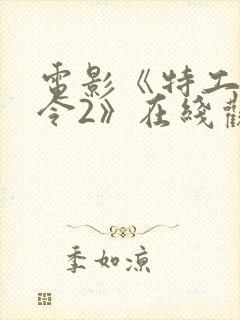 電影《特工
令2》在綫觀
季如凉